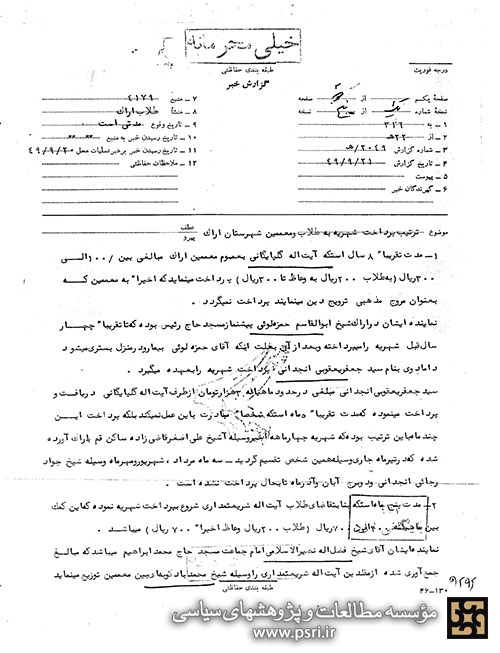 خیلی محرمانه
طبقه بندی حفاظتی
درجه فوریت
گزارش خبر
صفحه یکم از صفحه
نسخه شماره از نسخه
۱ - به ۳۱۶
۲ - از ۲۲ هـ
۳ - شماره گزارش ۲۰۴۹/هـ
۴ - تاریخ گزارش ۴۹/۹/۲۱
۵ - پیوست
۶ - گیرندگان خبر
۷ - منبع ۴۱۷۹
۸ - منشأ طلاب اراک
۹ - تاریخ وقوع مدتی است
۱۰ - تاریخ رسیدن خبر به منبع
۱۱ - تاریخ رسیدن خبر برهبر عملیات محل ۴۹/۹/۲۰
۱۲ - ملاحظات حفاظتی
موضوع ترتیب پرداخت شهریه به طلاب ومعممین شهرستان اراک
عطف
پیرو
۱- مدت تقریبا" ۸ سال استکه آیت اله گلپایگانی بعموم معممین اراک مبالغی بین ۱۰۰/ الی
۳۰۰ ریال (به طلاب ۲۰۰ ریال به وعاظ تا ۳۰۰ ریال) پرداخت مینماید که اخیرا" به معممین که
بعنوان مروج مذهبی ترویج دین مینمایند پرداخت نمیگردد.
نماینده ایشان در اراک شیخ ابوالقاسم حمزه لوئی پیشنماز مسجد حاج رئیس بوده که تا تقریبا" چهار
سال قبل شهریه را میپرداخته و بعد از آن بعلت اینکه آقای حمزه لوئی بیمار ودر منزل بستری میشود
داماد وی بنام سید جعفر یعقوبی انجدانی پرداخت شهریه را بعهده میگیرد.
سید جعفر یعقوبی انجدانی مبلغی در حدود ماهیانه ۳ هزار تومان از طرف آیت اله گلپایگانی دریافت و
پرداخت مینموده که مدت تقریبا" ۵ ماه استکه شخصا" مبادرت باین عمل نمیکند بلکه پرداخت این
چند ماه باین ترتیب بوده که شهریه چهار ماهه اخیر وسیله آشیخ علی اصغر قاضی زاده ساکن قم باراک آورده
شده که در تیر ماه جاری وسیله همین شخص تقسیم گردید - سه ماه مرداد، شهریور و مهر ماه وسیله شیخ جواد
رجائی انجدانی ودو برج آبان وآذر ماه تابحال پرداخت نشده است.
۲- مدت پنج ماه استکه بنا بتقاضای طلاب آیت اله شریعتمداری شروع بپرداخت شهریه نموده که این کمک
بین ۷۰۰ ریال (طلاب ۲۰۰ ریال وعاظ اخیرا" ۷۰۰ ریال) میباشد.
نماینده ایشان آقای شیخ فضل اله نصیرالاسلامی امام جماعت مسجد حاج محمد ابراهیم میباشد که مبالغ
جمع آوری شده از مقلدین آیت اله شریعتمداری را وسیله شیخ محمد باد کوبه ای بین معممین توزیع مینماید
طبقه بندی حفاظتی
۴۶-۱۳۰
مؤسسه مطالعات و پژوهشهای سیاسی
www.psri.ir